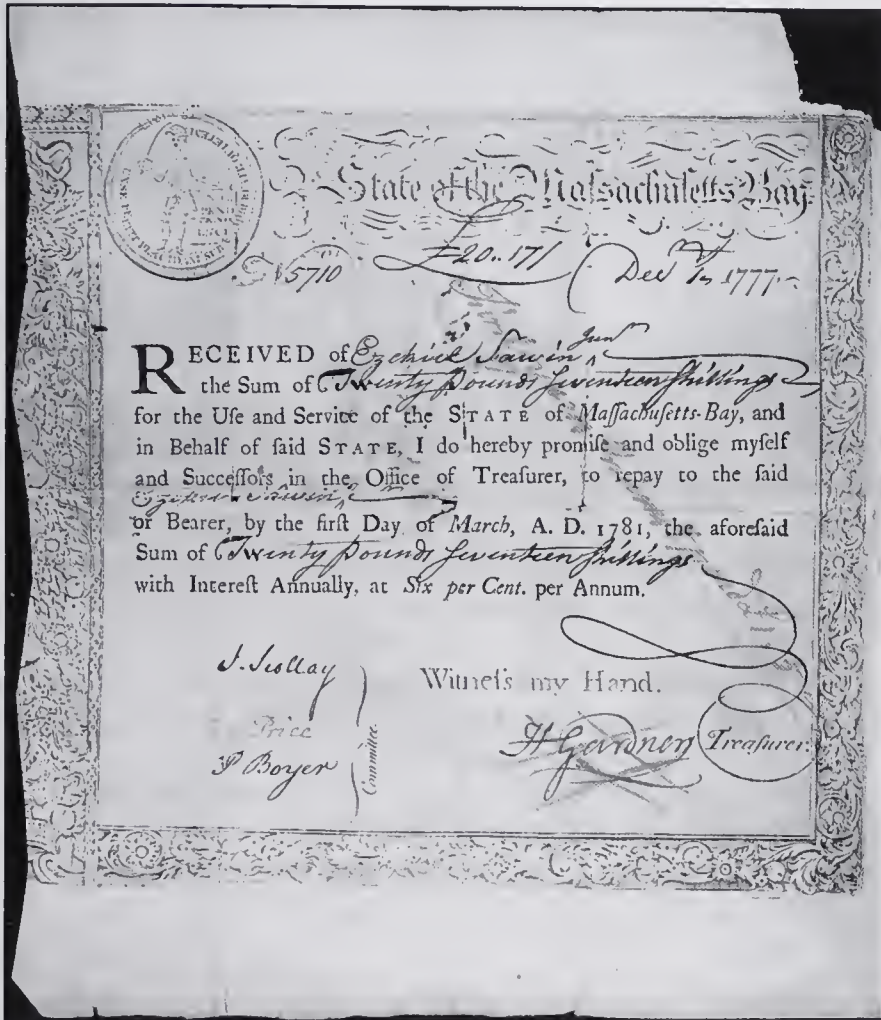 ENSE PETIT PLACIDAM SUB LIBERTATE QUIETEM
State of the Maſſachuſetts Bay.
5710 £20..17/ Decr 1, 1777
RECEIVED of Ezekiel Sawin Junr
the Sum of Twenty pounds ſeventeen ſhillings
for the Uſe and Service of the STATE of Maſſachuſetts-Bay, and
in Behalf of ſaid STATE, I do hereby promiſe and oblige myſelf
and Succeſſors in the Office of Treaſurer, to repay to the ſaid
Ezekiel Sawin
or Bearer, by the firſt Day of March, A. D. 1781, the aforeſaid
Sum of Twenty pounds ſeventeen ſhillings
with Intereſt Annually, at Six per Cent. per Annum.
Witneſs my Hand.
J. Scollay
Price
P Boyer
Committee.
H Gardner Treaſurer.